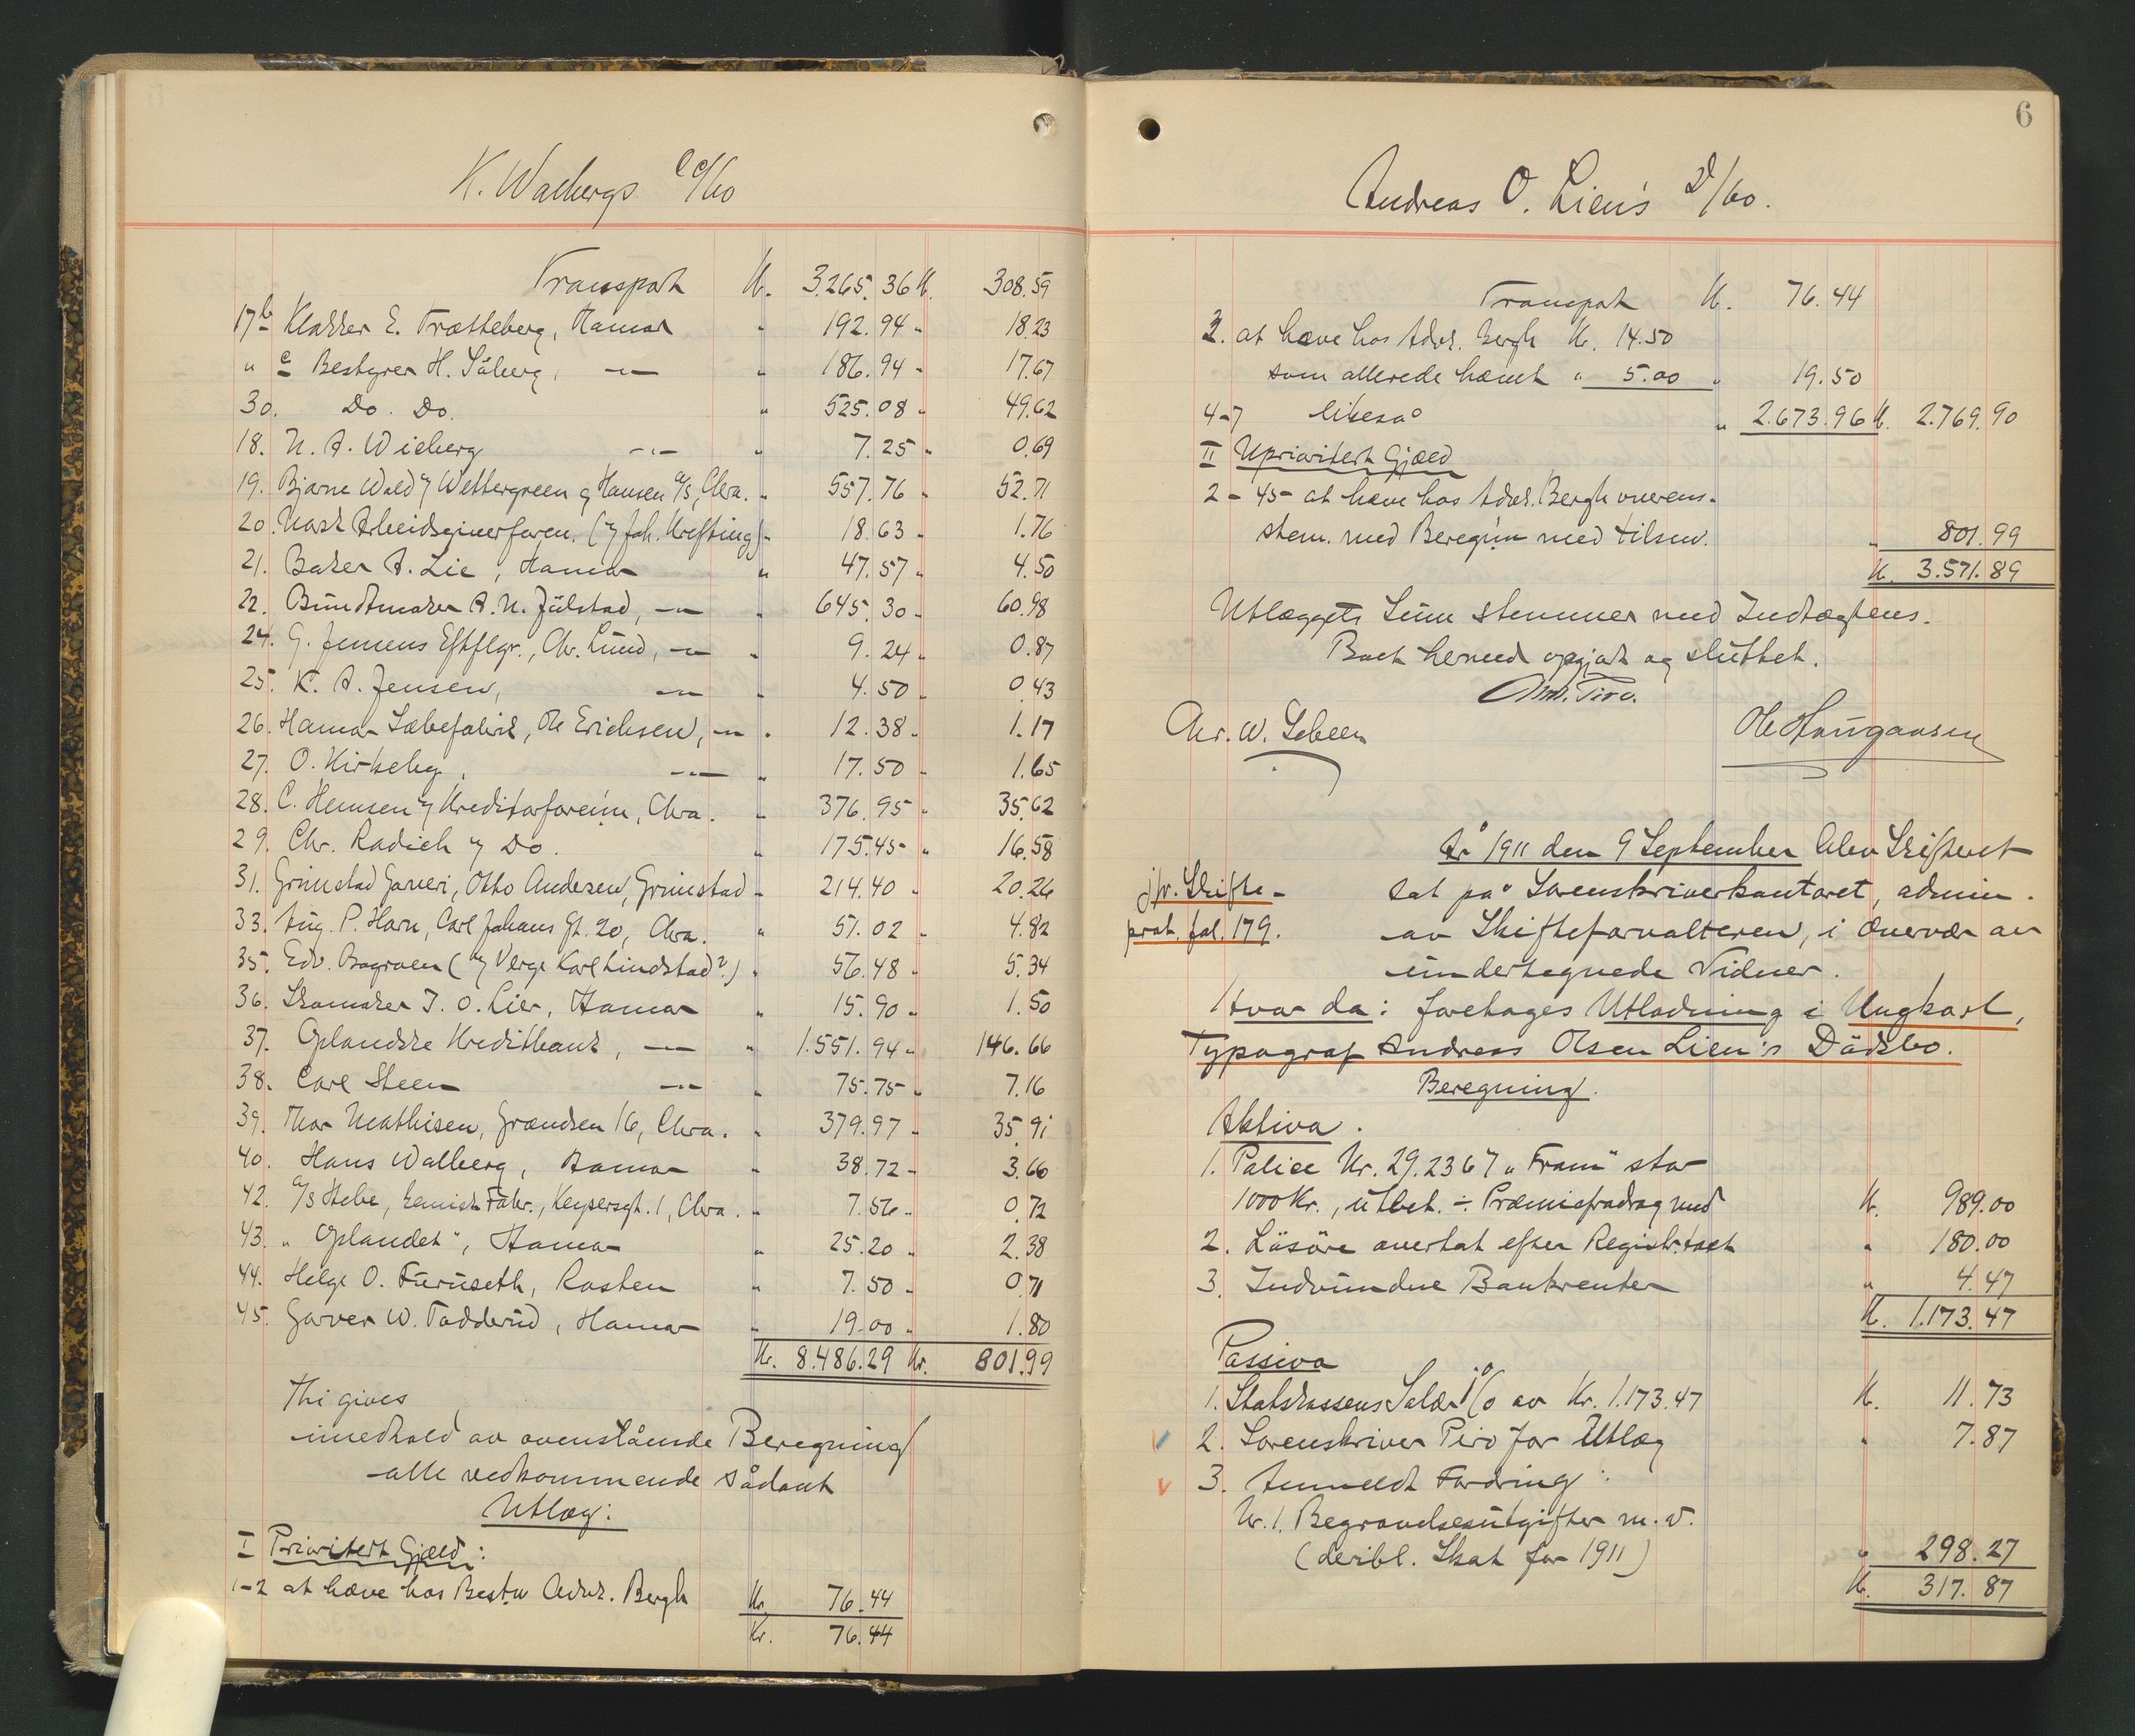 K. Walbergs C%bo
Transport Kr. 3.265.36 Kr. 308.59
17 b Klokker E. Trætteberg, Hamar " 192.94 " 18.23
" c Bestyrer H. Såberg, —"— " 186.94 " 17.67
30. Do. Do. " 525.08 " 49.62
18. N. A. Wieberg —"— " 7.25 " 0.69
19. Bjarne Wold v/ Wettergreen & Hansen A/S, Chra. " 557.76 " 52.71
20. Norsk Arbeidsgiverforen. (v/ Joh. Krefting) " 18.63 " 1.76
21. Baker A. Lie, Hamar " 47.57 " 4.50
22. Buntmaker A. N. Julstad, —"— " 645.30 " 60.98
24. G. Jensens Eftflgr., Chr. Lund, —"— " 9.24 " 0.87
25. K. A. Jensen, —"— " 4.50 " 0.43
26. Hamar Sæbefabrik, Ole Erichsen, —"— " 12.38 " 1.17
27. O. Kirkeby, —"— " 17.50 " 1.65
28. C. Hemsen v/ Kreditorforenin, Chra. " 376.95 " 35.62
29. Chr. Radich v/ Do. " 175.45 " 16.58
31. Grimstad Garveri, Otto Andersen, Grimstad " 214.40 " 20.26
33. Aug. P. Horn, Carl Johans Gt. 20, Chra. " 51.02 " 4.82
35. Edv. Bograven (v/ Verge Karl Lindstad?) " 56.48 " 5.34
36. Skomaker J. O. Lier, Hamar " 15.90 " 1.50
37. Oplandske Kreditbank, —"— " 1.551.94 " 146.66
38. Carl Steen —"— " 75.75 " 7.16
39. Thor Mathisen, Grændsen 16, Chra. " 379.97 " 35.91
40. Hans Walberg, Hamar " 38.72 " 3.66
42. A/S Hebe, kemisk Fabr., Keysersgt. 1, Chra. " 7.56 " 0.72
43. "Oplandet", Hamar " 25.20 " 2.38
44. Helge O. Furuseth, Rosten " 7.50 " 0.71
45. Garver W. Todderud, Hamar " 19.00 " 1.80
Kr. 8.486.29 Kr. 801.99
Thi gives
i medhold av ovenstående Beregning
alle vedkommende sådant
Utlæg:
I Prioritert Gjæld:
1-2 at hæve hos Best.v Advk. Bergh Kr. 76.44
Kr. 76.44
6
Andreas O. Lien's D/bo.
Transport Kr. 76.44
3. at hæve hos Advk. Bergh Kr. 14.50
som allerede hævet " 5.00 " 19.50
4-7 likeså " 2.673.96 Kr. 2.769.90
II Uprioritert Gjæld
2-45 at hæve hos Advk. Bergh overens-
stem. med Beregnin med tilsm. " 801.99
Kr. 3.571.89
Utlæggets Sum stemmer med Indtægtens.
Boet hermed opgjort og sluttet.
Ant. Piro.
Chr. W. Sebeen Ole Haugaasen
År 1911 den 9 September blev Skifteret
jfr. Skifte- sat på Sorenskriverkontoret, admin.
prot. fol. 179. av Skifteforvalteren, i Overvær av
undertegnede Vidner.
Hvor da: foretages Utlodning i Ungkarl,
Typograf Andreas Olsen Lien's Dödsbo.
Beregning.
Aktiva.
1. Police Nr. 29.236 v/ "Fram" stor
1000 Kr., utbet. ÷ Præmiefradrag med Kr. 989.00
2. Lösöre overtat efter Registr.takt " 180.00
3. Indvundne Bankrenter " 4.47
Kr. 1.173.47
Passiva
1. Statskassens Salær 1% av Kr. 1.173.47 Kr. 11.73
2. Sorenskriver Piro for Utlæg " 7.87
3. Anmeldt Fordring:
Nr. 1. Begravelsesutgifter m. v.
(deribl. Skat for 1911) " 298.27
Kr. 317.87